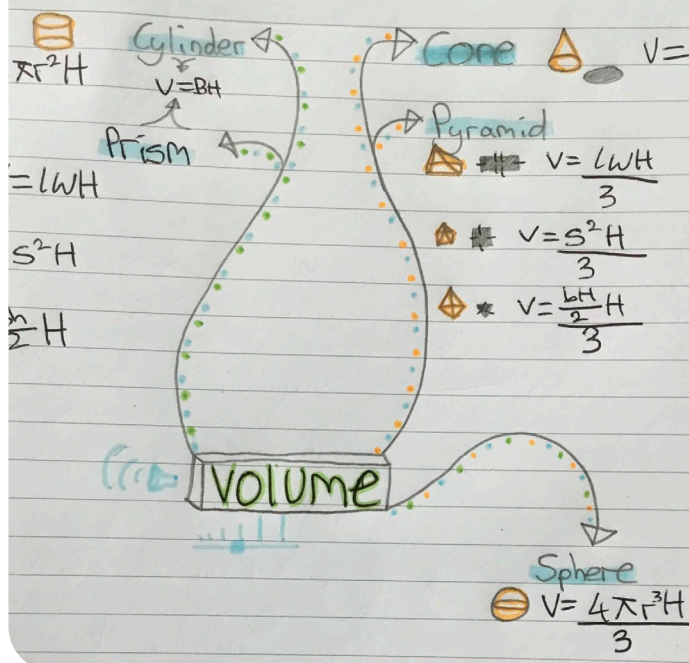 Cylinder
πr²H
V=BH
Prism
=lwH
s²H
Cone
V=
Pyramid
V=lwH
3
V=s²H
3
V=bH
2
H
3
VOLUME
Sphere
V=4πr³H
3